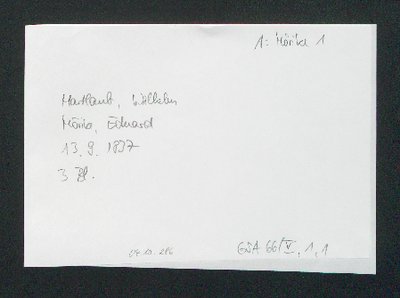 A: Mörike 1
Hartlaub, Wilhelm
Mörike, Eduard
13. 9. 1837
3 Bl.
GSA 66/V, 1, 1